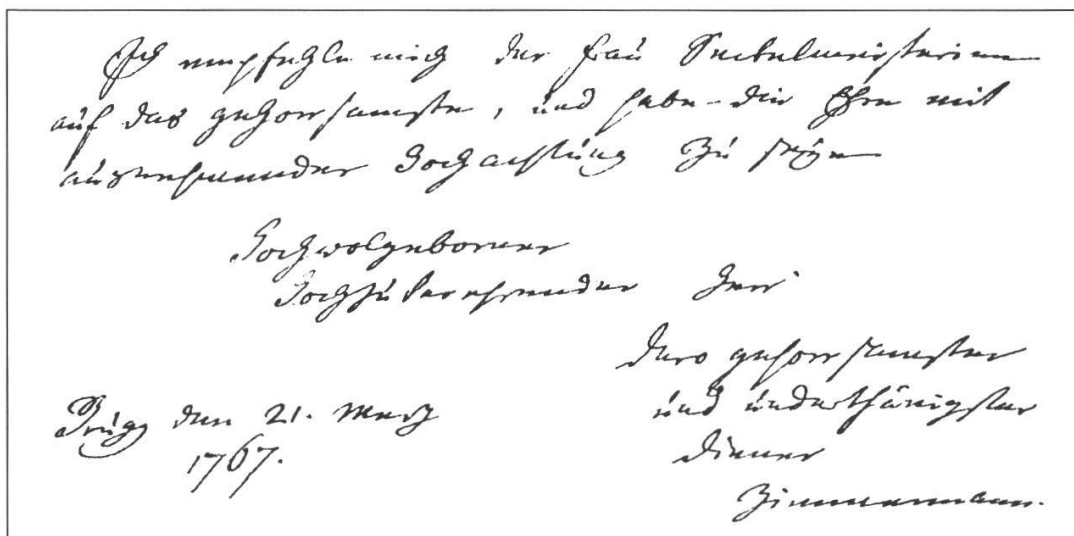 Ich empfehle mich der Frau Sekelmeisterinn
auf das gehorsamste, und habe die Ehre mit
ausnehmender Hochachtung zu seyn
Hochwolgeborner
Hochzuverehrender Herr
Dero gehorsamster
und underthänigster
Diener
Zimmermann.
Brugg den 21. Merz
1767.